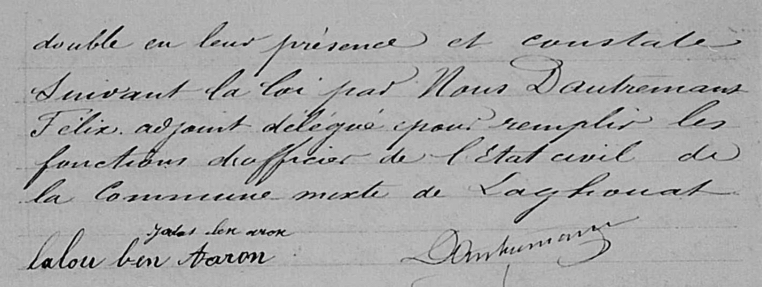 double en leur présence et constaté
Suivant la loi par Nous Dautremant
Félix adjoint délégué pour remplir les
fonctions d'officier de l'Etat civil de
la Commune mixte de Laghouat
ben aron
lalou ben Aaron Dautremant